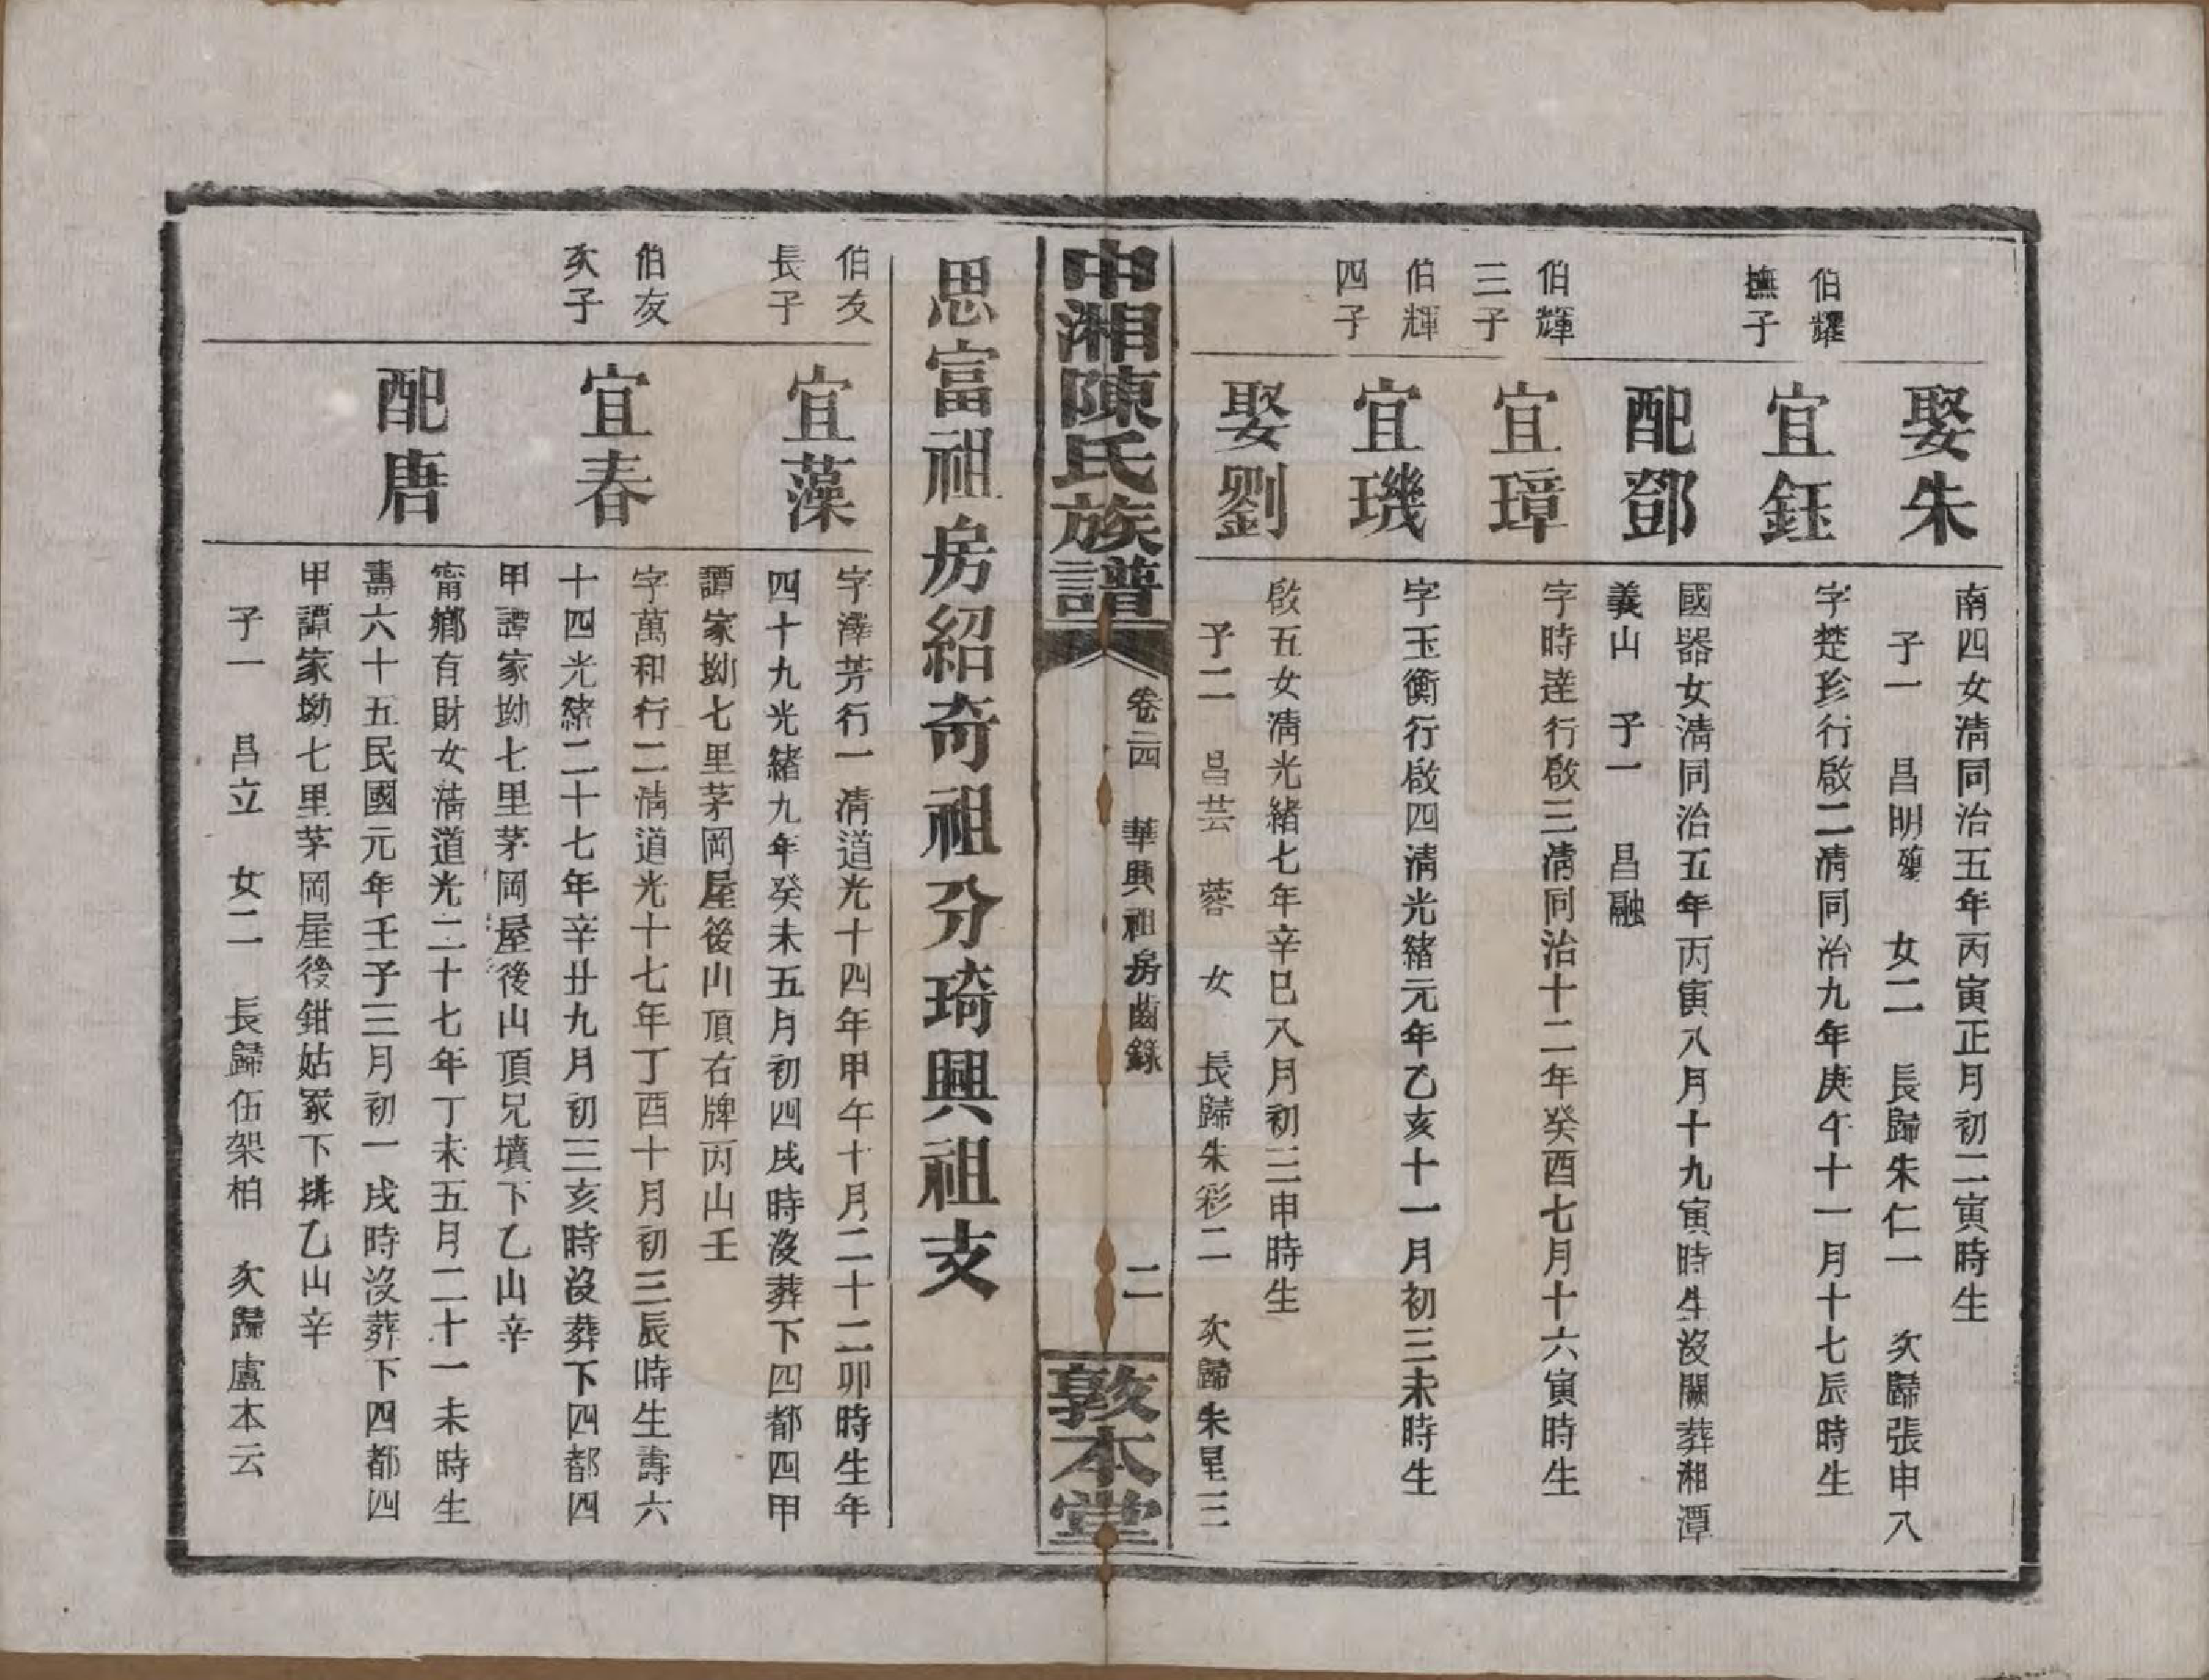 娶朱
南四女清同治五年丙寅正月初二寅時生
子一 昌明殤 女二 長歸朱仁一 次歸張申八
伯耀
撫子
宜鈺
字楚珍行啟二清同治九年庚午十一月十七辰時生
配鄧
國器女清同治五年丙寅八月十九寅時生沒闕葬湘潭
義山 子一 昌融
伯輝
三子
宜璋
字時達行啟三清同治十二年癸酉七月十六寅時生
伯輝
四子
宜璣
字玉衡行啟四清光緒元年乙亥十一月初三未時生
娶劉
啟五女清光緒七年辛巳八月初三申時生
子二 昌芸 蓉 女 長歸朱彩二 次歸朱星三
中湘陳氏族譜
卷二四 華興祖房齒錄 二
敦本堂
思富祖房紹奇祖分琦興祖支
伯友
長子
宜藻
字澤芳行一清道光十四年甲午十月二十二卯時生年
四十九光緒九年癸未五月初四戌時沒葬下四都四甲
譚家坳七里茅岡屋後山頂右牌丙山壬
伯友
次子
宜春
字萬和行二清道光十七年丁酉十月初三辰時生壽六
十四光緒二十七年辛丑九月初三亥時沒葬下四都四
甲譚家坳七里茅岡屋後山頂兄墳下乙山辛
配唐
甯鄉有財女清道光二十七年丁未五月二十一未時生
壽六十五民國元年壬子三月初一戌時沒葬下四都四
甲譚家坳七里茅岡屋後鉗姑冢下排乙山辛
子一 昌立 女二 長歸伍架柏 次歸盧本云